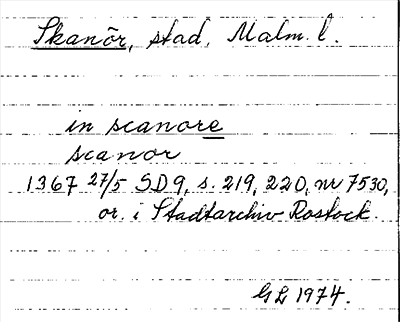 Skanör, stad, Malm. l.
in scanore
scanor
1367 27/5 SD 9, s. 219, 220, nr 7530,
or. i Stadtarchiv Rostock.
GL 1974.